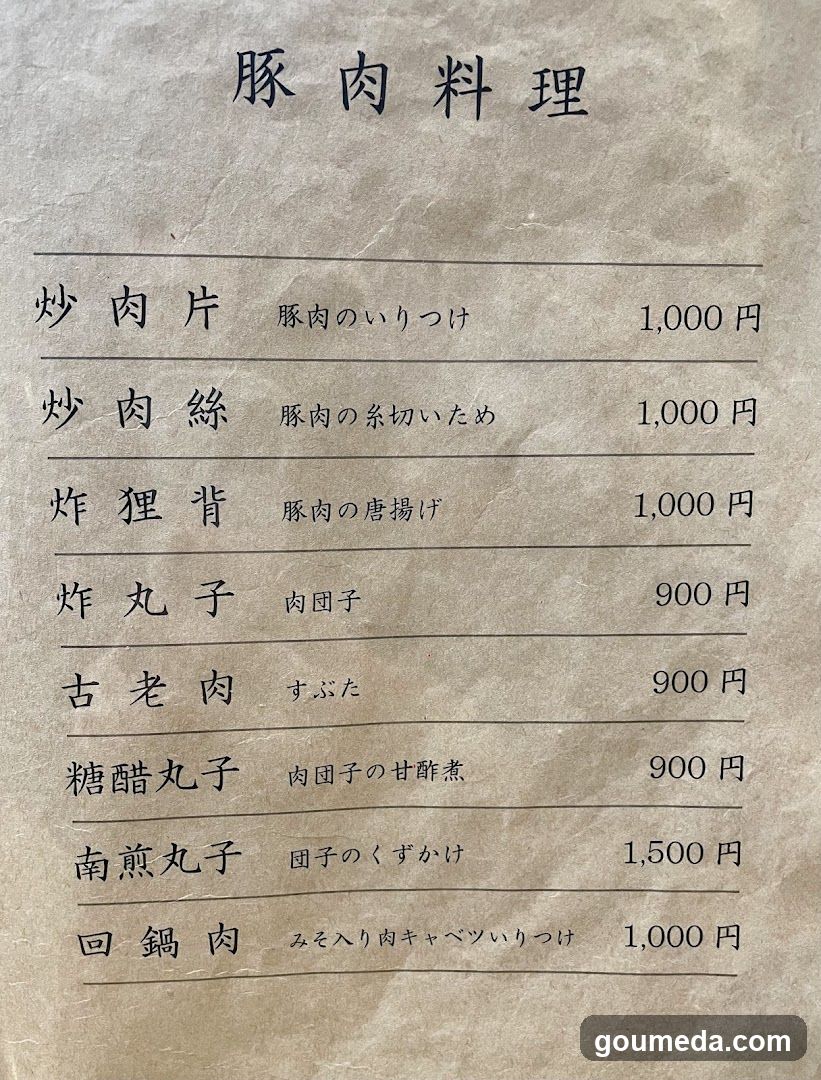 豚肉料理
炒肉片 豚肉のいりつけ 1,000円
炒肉絲 豚肉の糸切いため 1,000円
炸狸背 豚肉の唐揚げ 1,000円
炸丸子 肉団子 900円
古老肉 すぶた 900円
糖醋丸子 肉団子の甘酢煮 900円
南煎丸子 団子のくずかけ 1,500円
回鍋肉 みそ入り肉キャベツいりつけ 1,000円
goumeda.com